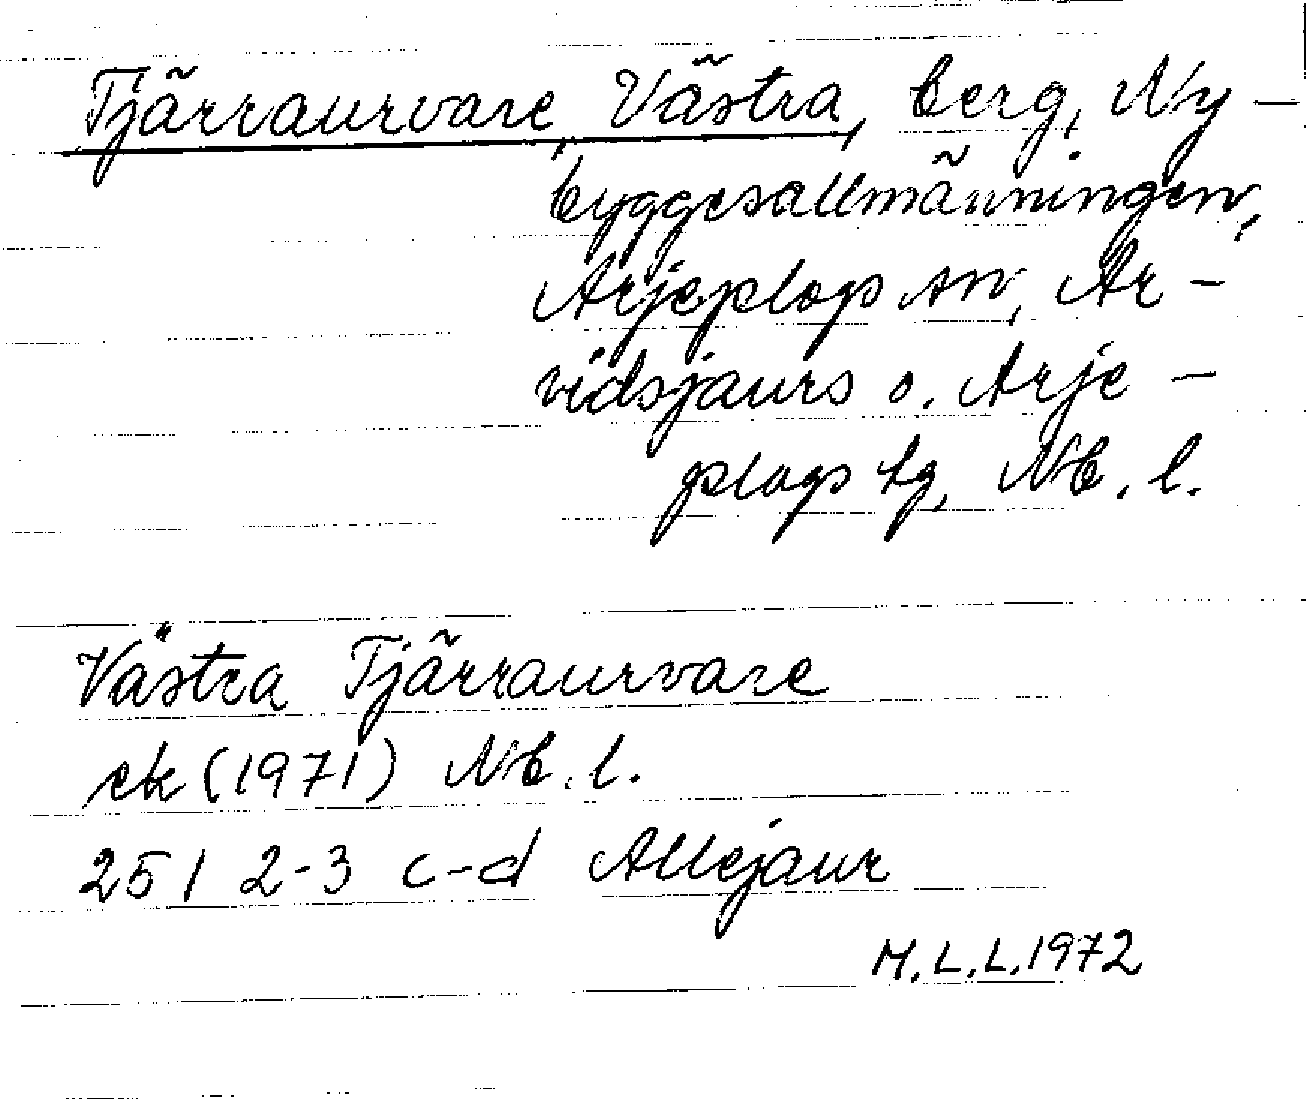 Tjärraurvare, Västra, berg, Ny-
byggesallmänningen,
Arjeplogs sn, Ar-
vidsjaurs o. Arje-
plogs tg, Nb. l.
Västra Tjärraurvare
ek (1971) Nb. l.
25 I 2-3 c-d Allejaur
M.L.L. 1972